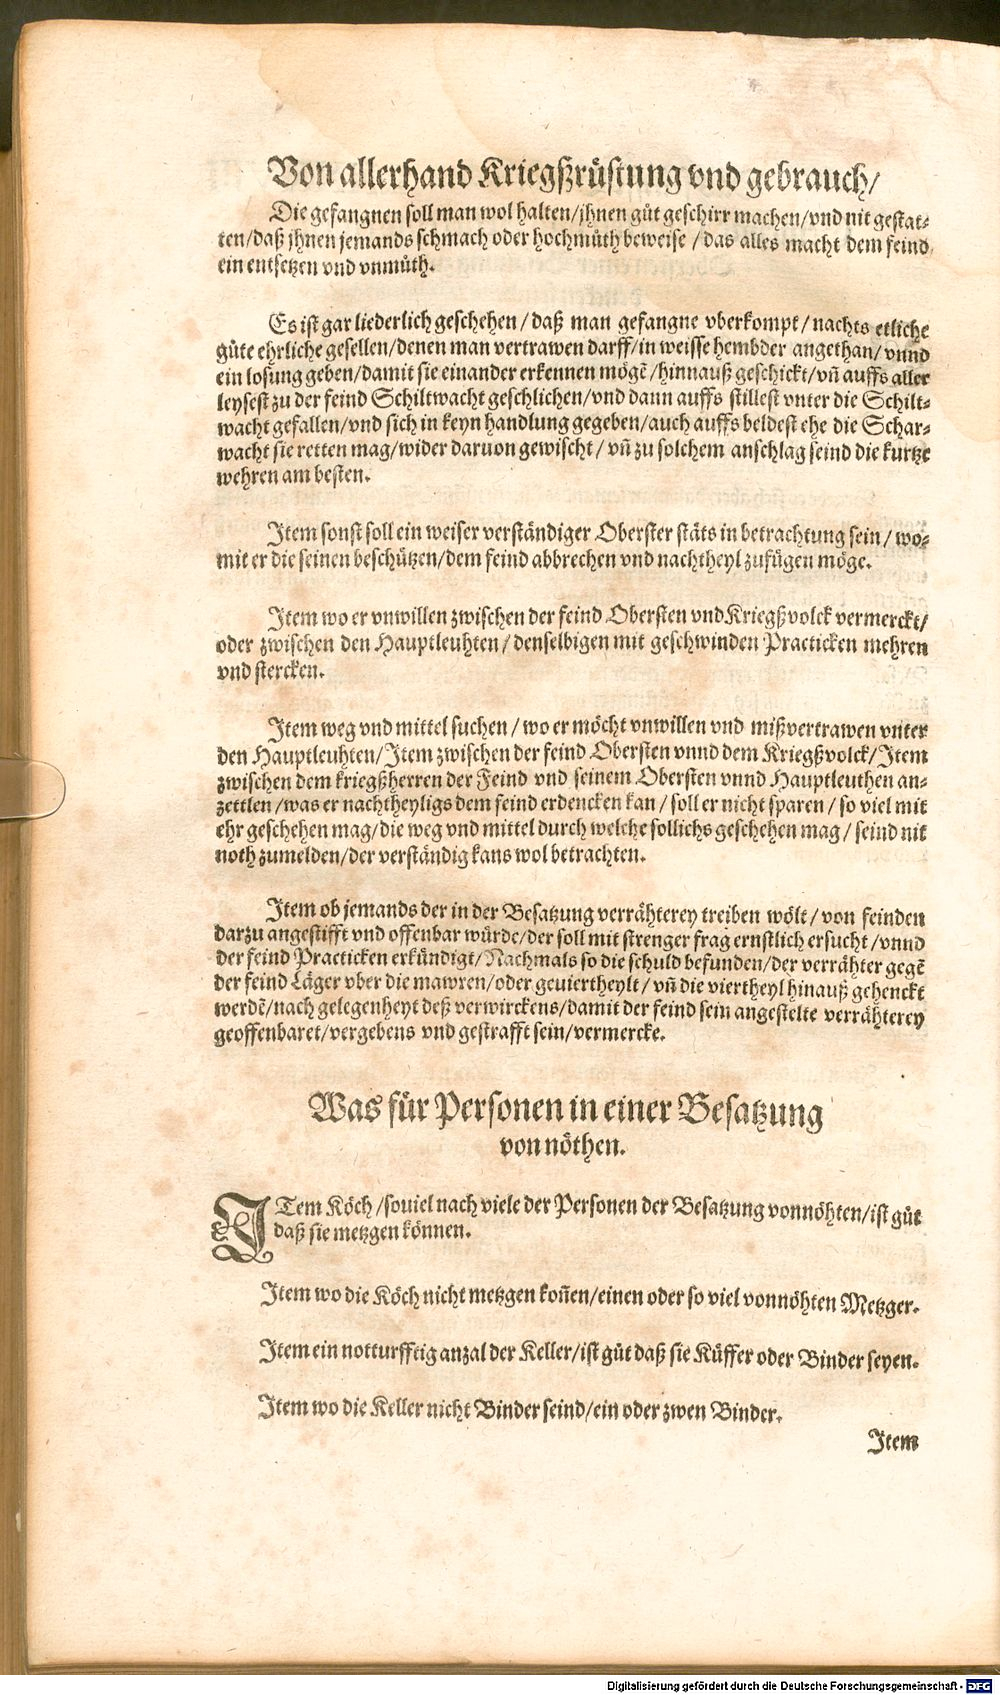 Von allerhand Kriegßrüstung vnd gebrauch/
Die gefangnen soll man wol halten/jhnen gůt geschirr machen/vnd nit gestat⸗
ten/daß jhnen jemands schmach oder hochmůth beweise / das alles macht dem feind
ein entsetzen vnd vnmůth.
Es ist gar liederlich geschehen / daß man gefangne vberkompt / nachts etliche
gůte ehrliche gesellen/denen man vertrawen darff/in weisse hembder angethan/ vnnd
ein losung geben/damit sie einander erkennen mögē/hinnauß geschickt/vñ auffs aller
leysest zu der feind Schiltwacht geschlichen/vnd dann auffs stillest vnter die Schilt⸗
wacht gefallen/vnd sich in keyn handlung gegeben/auch auffs beldest ehe die Schar⸗
wacht sie retten mag/wider daruon gewischt / vñ zu solchem anschlag seind die kurtze
wehren am besten.
Item sonst soll ein weiser verständiger Oberster stäts in betrachtung sein / wo⸗
mit er die seinen beschützen/dem feind abbrechen vnd nachtheyl zufügen möge.
Item wo er vnwillen zwischen der feind Obersten vnd Kriegßvolck vermerckt/
oder zwischen den Hauptleuhten / denselbigen mit geschwinden Practicken mehren
vnd stercken.
Item weg vnd mittel suchen / wo er möcht vnwillen vnd mißvertrawen vnter
den Hauptleuhten/Item zwischen der feind Obersten vnnd dem Kriegßvolck/Item
zwischen dem kriegßherren der Feind vnd seinem Obersten vnnd Hauptleuthen an⸗
zettlen /was er nachtheyligs dem feind erdencken kan / soll er nicht sparen / so viel mit
ehr geschehen mag/die weg vnd mittel durch welche sollichs geschehen mag / seind nit
noth zumelden/der verständig kans wol betrachten.
Item ob jemands der in der Besatzung verrähterey treiben wölt / von feinden
darzu angestifft vnd offenbar würde/der soll mit strenger frag ernstlich ersucht /vnnd
der feind Practicken erkündigt/Nachmals so die schuld befunden/der verrähter gegē
der feind Läger vber die mawren/oder geuiertheylt / vñ die viertheyl hinauß gehenckt
werdē/nach gelegenheyt deß verwirckens/damit der feind sein angestelte verrähterey
geoffenbaret/vergebens vnd gestrafft sein/vermercke.
Was für Personen in einer Besatzung
von nöthen.
ITem Köch /souiel nach viele der Personen der Besatzung vonnöhten/ist gůt
daß sie metzgen können.
Item wo die Köch nicht metzgen koñen/einen oder so viel vonnöhten Metzger.
Item ein notturfftig anzal der Keller/ist gůt daß sie Küffer oder Binder seyen.
Item wo die Keller nicht Binder seind/ein oder zwen Binder.
Item
Digitalisierung gefördert durch die Deutsche Forschungsgemeinschaft - DFG